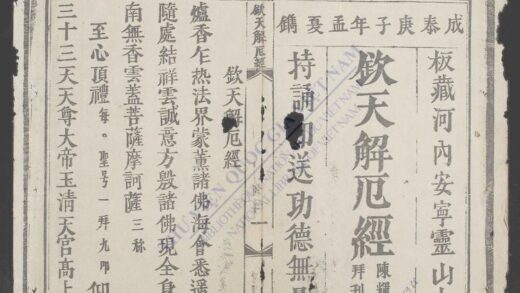 成泰庚子年孟夏鐫
板藏河內安寧靈山
欽天解厄經
陳耀
拜刊
持誦印送功德無
欽天解厄經
一
欽天解厄經
爐香乍热法界蒙薰諸佛海會悉遥
隨處結祥雲誠意方殷諸佛現全身
南無香雲盖菩薩摩訶薩三称
至心頂禮每。聖号一拜九叩仰
三十三天天尊大帝玉清天宮高上
NATIONAL LIBRARY OF VIETNAM